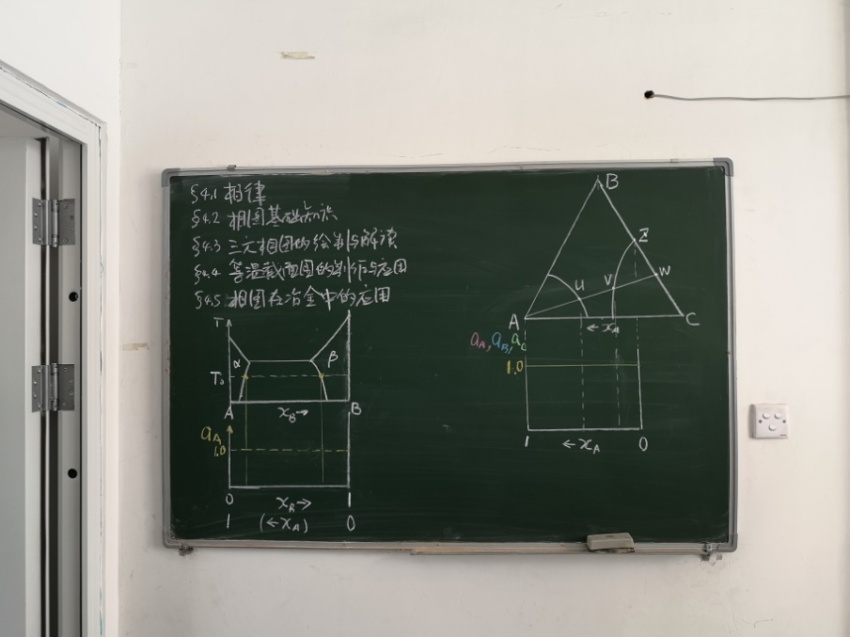 §4.1 相律
§4.2 相图基础知识
§4.3 三元相图的绘制与解读
§4.4 等温截面图的剖析与应用
§4.5 相图在冶金中的应用
T
α
β
T₀
A
x_B→
B
a_A
1.0
0
x_B→
1
1
(←x_A)
0
B
Z
W
U
V
A
←x_A
C
a_A, a_B, a_C
1.0
1
←x_A
0